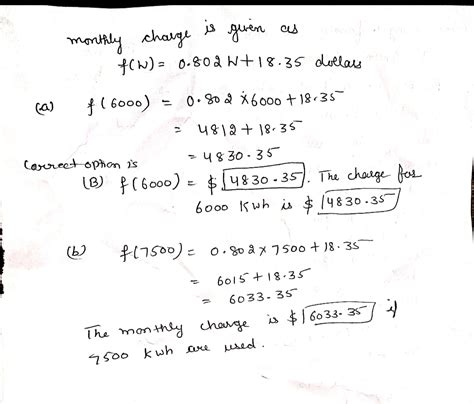 monthly charge is given as
f(N) = 0.802 N + 18.35 dollars
(a) f(6000) = 0.802 × 6000 + 18.35
= 4812 + 18.35
= 4830.35
Correct option is
(B) f(6000) = $ 4830.35. The charge for
6000 Kwh is $ 4830.35
(b) f(7500) = 0.802 × 7500 + 18.35
= 6015 + 18.35
= 6033.35
The monthly charge is $ 6033.35 if
7500 kwh are used.